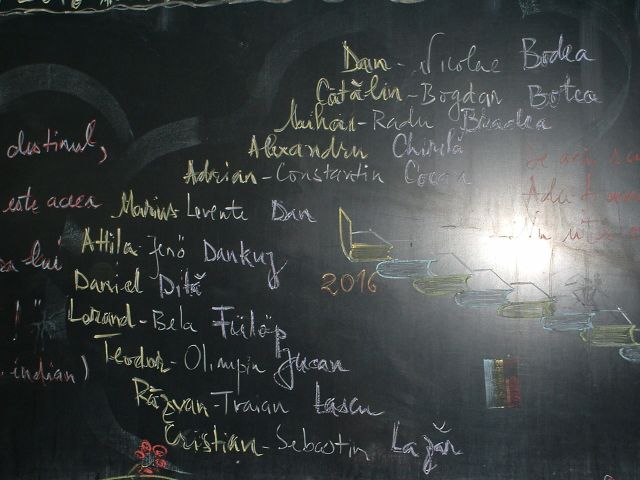 Dan - Nicolae Bodea
Cătălin - Bogdan Botea
Mihai - Radu Bradea
Alexandru Chirilă
Adrian - Constantin Cocoa
Marius Levente Dan
Attila Jenö Dankuy
Daniel Dită
Lorand - Bela Fülöp
Teodor - Olimpiu Jucan
Răzvan - Traian Lascu
Cristian - Sebastin Lazăr
destinul,
este aceea
lui
!"
indian)
2016